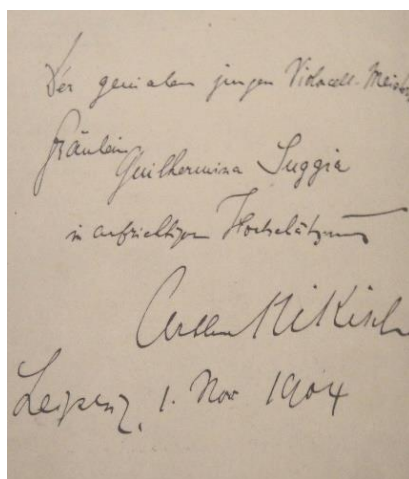 Der genialen jungen Violoncell-Meisterin
Fräulein
Guilhermina Suggia
in aufrichtiger Hochschätzung
Arthur Nikisch
Leipzig, 1. Nov 1904